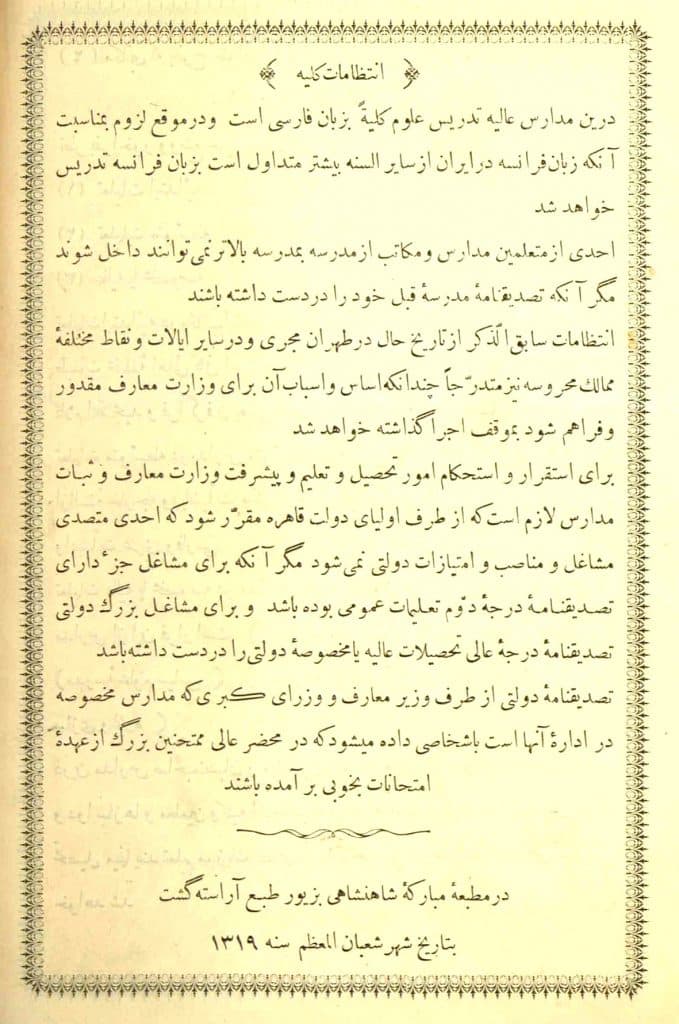 ﴿ انتظامات کلیه ﴾
درین مدارس عالیه تدریس علوم کلیةً بزبان فارسی است ودرموقع لزوم بمناسبت
آنکه زبان فرانسه در ایران از سایر السنه بیشتر متداول است بزبان فرانسه تدریس
خواهد شد
احدی از متعلمین مدارس ومکاتب از مدرسه بمدرسه بالاتر نمی توانند داخل شوند
مگر آنکه تصدیقنامهٔ مدرسهٔ قبل خود را دردست داشته باشند
انتظامات سابق الذکر از تاریخ حال در طهران مجری ودر سایر ایالات ونقاط مختلفهٔ
ممالك محروسه نیز متدرّجاً چندانکه اساس واسباب آن برای وزارت معارف مقدور
وفراهم شود بموقف اجرا گذاشته خواهد شد
برای استقرار و استحکام امور تحصیل و تعلیم و پیشرفت وزارت معارف و ثبات
مدارس لازم است که از طرف اولیای دولت قاهره مقرّر شود که احدی متصدی
مشاغل و مناصب و امتیازات دولتی نمی شود مگر آنکه برای مشاغل جزء دارای
تصدیقنامهٔ درجهٔ دوّم تعلیمات عمومی بوده باشد و برای مشاغل بزرگ دولتی
تصدیقنامهٔ درجهٔ عالی تحصیلات عالیه یا مخصوصهٔ دولتی را دردست داشته باشد
تصدیقنامهٔ دولتی از طرف وزیر معارف و وزرای کبری که مدارس مخصوصه
در ادارهٔ آنها است باشخاصی داده میشود که در محضر عالی ممتحنین بزرگ از عهدهٔ
امتحانات بخوبی بر آمده باشند
در مطبعهٔ مبارکهٔ شاهنشاهی بزیور طبع آراسته گشت
بتاریخ شهر شعبان المعظم سنه ۱۳۱۹